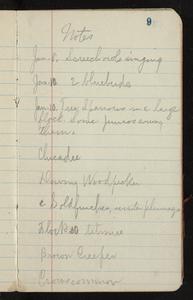 9
Notes
Jan. 8, Screech owl singing
Jan. 10. 2 bluebirds
Jan. 10. Tree Sparrows in a large
flock. Some juncos among
them.
Chicadee
Downy Woodpecker
Goldfinches, winter plumage
Flock titmice
Brown Creeper
Crows common